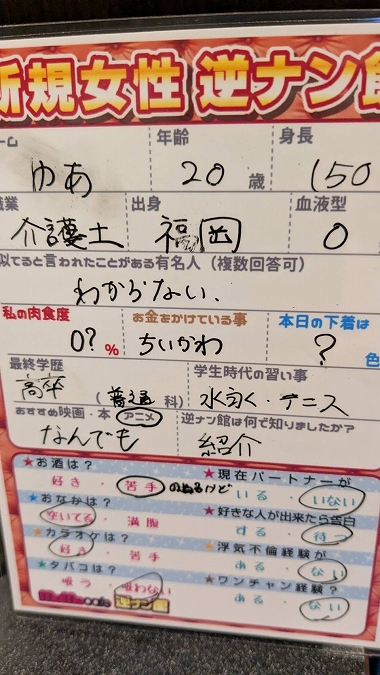 新規女性 逆ナン館
ーム 年齢 身長
ゆあ 20 歳 150
職業 出身 血液型
介護士 福岡 O
似てると言われたことがある有名人（複数回答可）
わからない、
私の肉食度 お金をかけている事 本日の下着は
0? % ちいかわ ? 色
最終学歴 学生時代の習い事
高卒 （普通 科） 水泳・テニス
おすすめ映画・本 アニメ 逆ナン館は何で知りましたか？
なんでも 紹介
★お酒は？ ★現在パートナーが
好き ・ 苦手 のめるけど いる ・ いない
★おなかは？ ★好きな人が出来たら告白
空いてる ・ 満腹 する ・ 待つ
★カラオケは？ ★浮気不倫経験が
好き ・ 苦手 ある ・ ない
★タバコは？ ★ワンチャン経験が
吸う ・ 吸わない ある ・ ない
逆ナン館